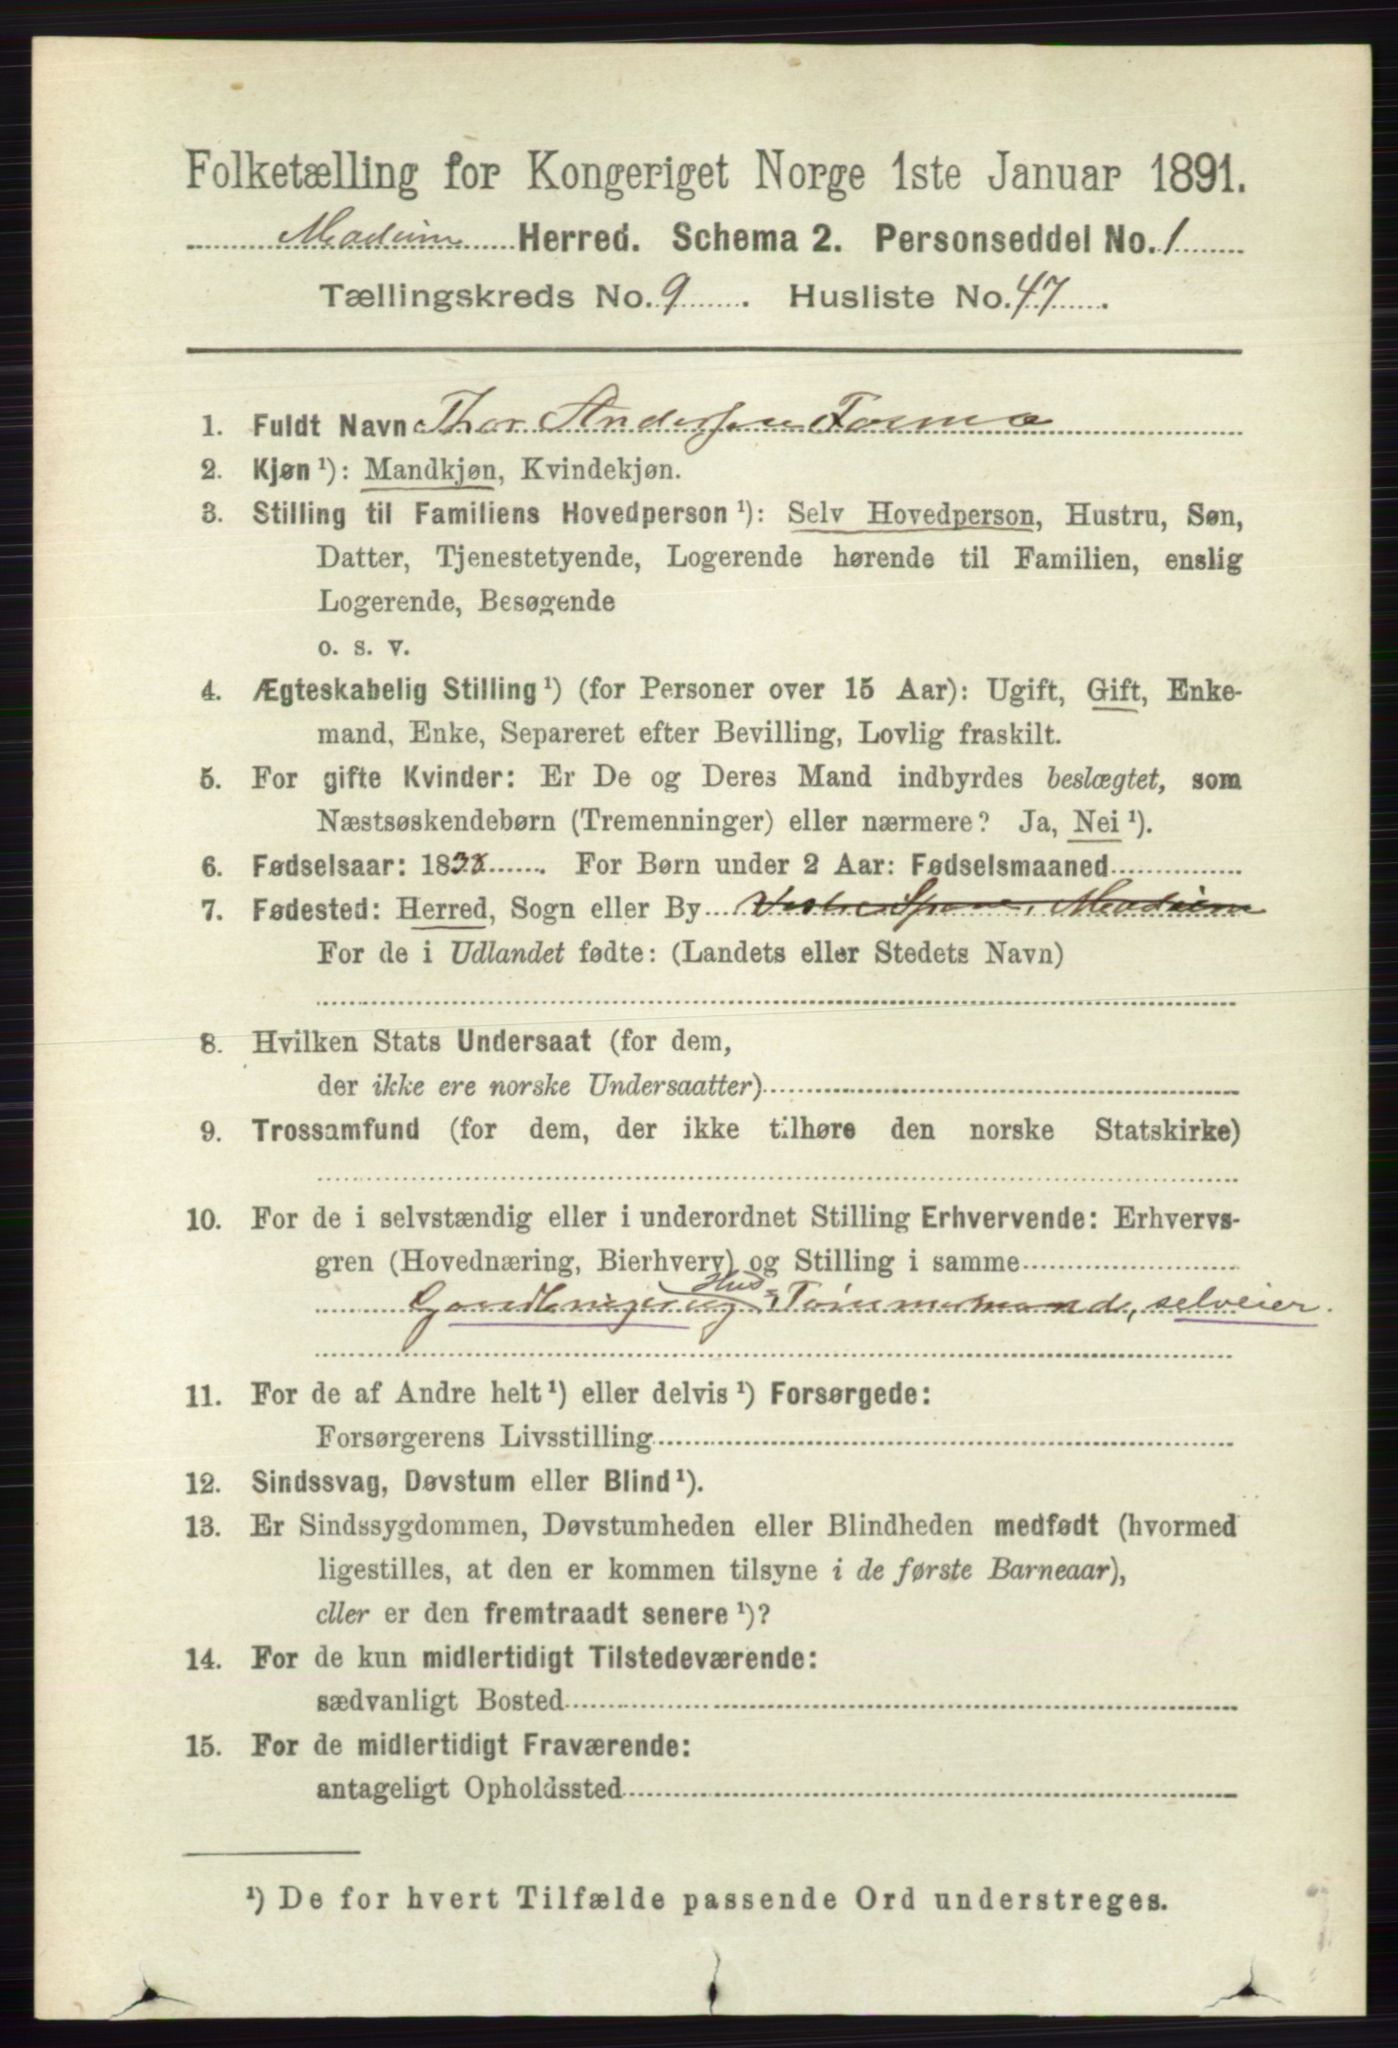 Folketælling for Kongeriget Norge 1ste Januar 1891.
Modum Herred. Schema 2. Personseddel No. 1
Tællingskreds No. 9. Husliste No. 47.
1. Fuldt Navn Thor Andersen
2. Kjøn ¹): Mandkjøn, Kvindekjøn.
3. Stilling til Familiens Hovedperson ¹): Selv Hovedperson, Hustru, Søn,
Datter, Tjenestetyende, Logerende hørende til Familien, enslig
Logerende, Besøgende
o. s. v.
4. Ægteskabelig Stilling ¹) (for Personer over 15 Aar): Ugift, Gift, Enke-
mand, Enke, Separeret efter Bevilling, Lovlig fraskilt.
5. For gifte Kvinder: Er De og Deres Mand indbyrdes beslægtet, som
Næstsøskendebørn (Tremenninger) eller nærmere? Ja, Nei ¹).
6. Fødselsaar: 1838. For Børn under 2 Aar: Fødselsmaaned
7. Fødested: Herred, Sogn eller By Modum
For de i Udlandet fødte: (Landets eller Stedets Navn)
8. Hvilken Stats Undersaat (for dem,
der ikke ere norske Undersaatter)
9. Trossamfund (for dem, der ikke tilhøre den norske Statskirke)
10. For de i selvstændig eller i underordnet Stilling Erhvervende: Erhvervs-
gren (Hovednæring, Bierhverv) og Stilling i samme
Hus-
Gaardbruger og Tømmermand, selveier.
11. For de af Andre helt ¹) eller delvis ¹) Forsørgede:
Forsørgerens Livsstilling
12. Sindssvag, Døvstum eller Blind ¹).
13. Er Sindssygdommen, Døvstumheden eller Blindheden medfødt (hvormed
ligestilles, at den er kommen tilsyne i de første Barneaar),
eller er den fremtraadt senere ¹)?
14. For de kun midlertidigt Tilstedeværende:
sædvanligt Bosted
15. For de midlertidigt Fraværende:
antageligt Opholdssted
¹) De for hvert Tilfælde passende Ord understreges.